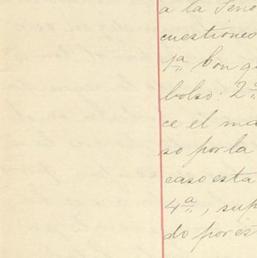 a la Seño
cuestiones
1ª Con q
bolso. 2ª
ce el ma
so por la
caso está
4ª, sup
do por es